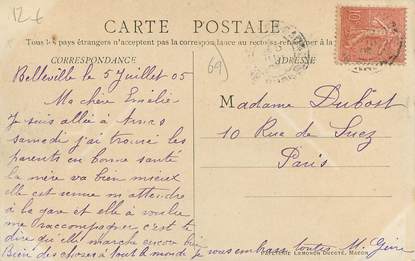 12 €
CARTE POSTALE
Tous les pays étrangers n'acceptent pas la correspondance au recto, se renseigner à la
CORRESPONDANCE
69
Belleville le 5 Juillet 05
Ma chère Emélie
Je suis allée à
samedi j'ai trouvé les
parents en bonne santé
la mère va bien mieux
elle est venue m attendre
à la gare et elle a voulu
me raccompagner c'est te
dire qu'elle marche encore bien
Bien des choses à tout le monde Je vous embrasse toutes M.
Madame Dubost
10 Rue de Suez
Paris
LEMONON DUCOTÉ, MACON